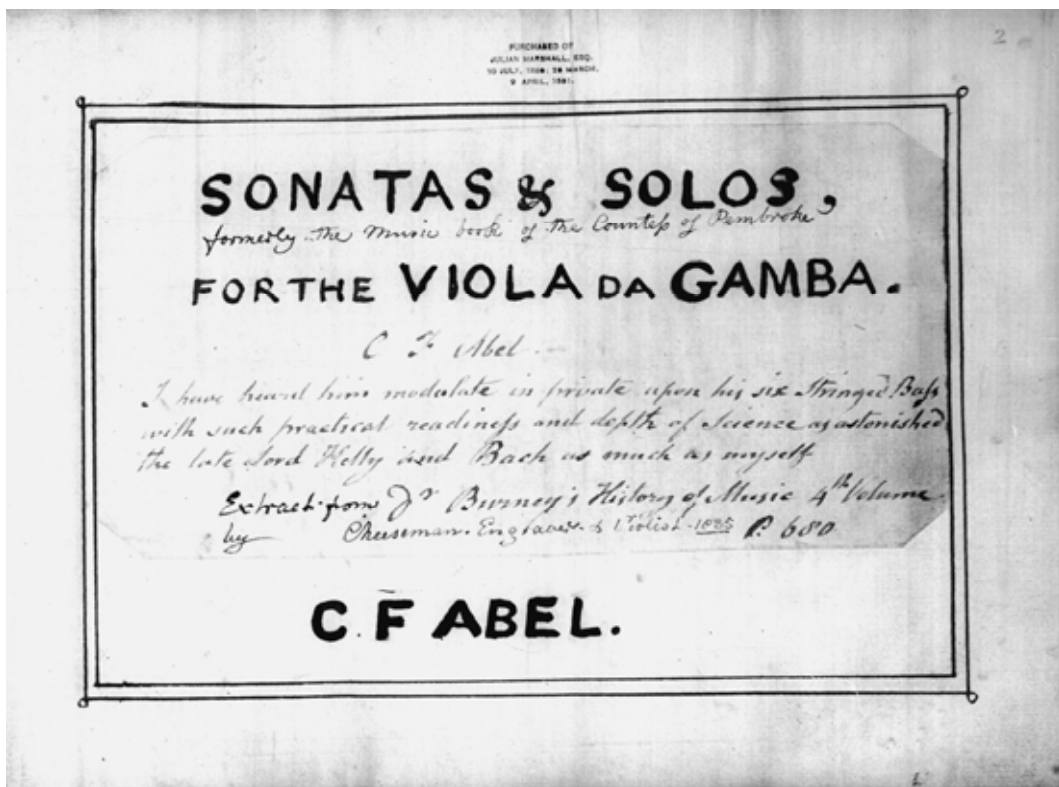 2
PURCHASED OF
JULIAN MARSHALL, ESQ.
10 JULY, 1880; 26 MARCH,
9 APRIL, 1881.
SONATAS & SOLOS,
formerly the Music book of the Countess of Pembroke
FOR THE VIOLA DA GAMBA.
C F Abel
I have heard him modulate in private upon his six Stringed Bass
with such practical readiness and depth of Science as astonished
the late Lord Kelly and Bach as much as myself
Extract from Dr Burney's History of Music 4th Volume
by Cheeseman. Engraver & Violist P. 680
C. F ABEL.